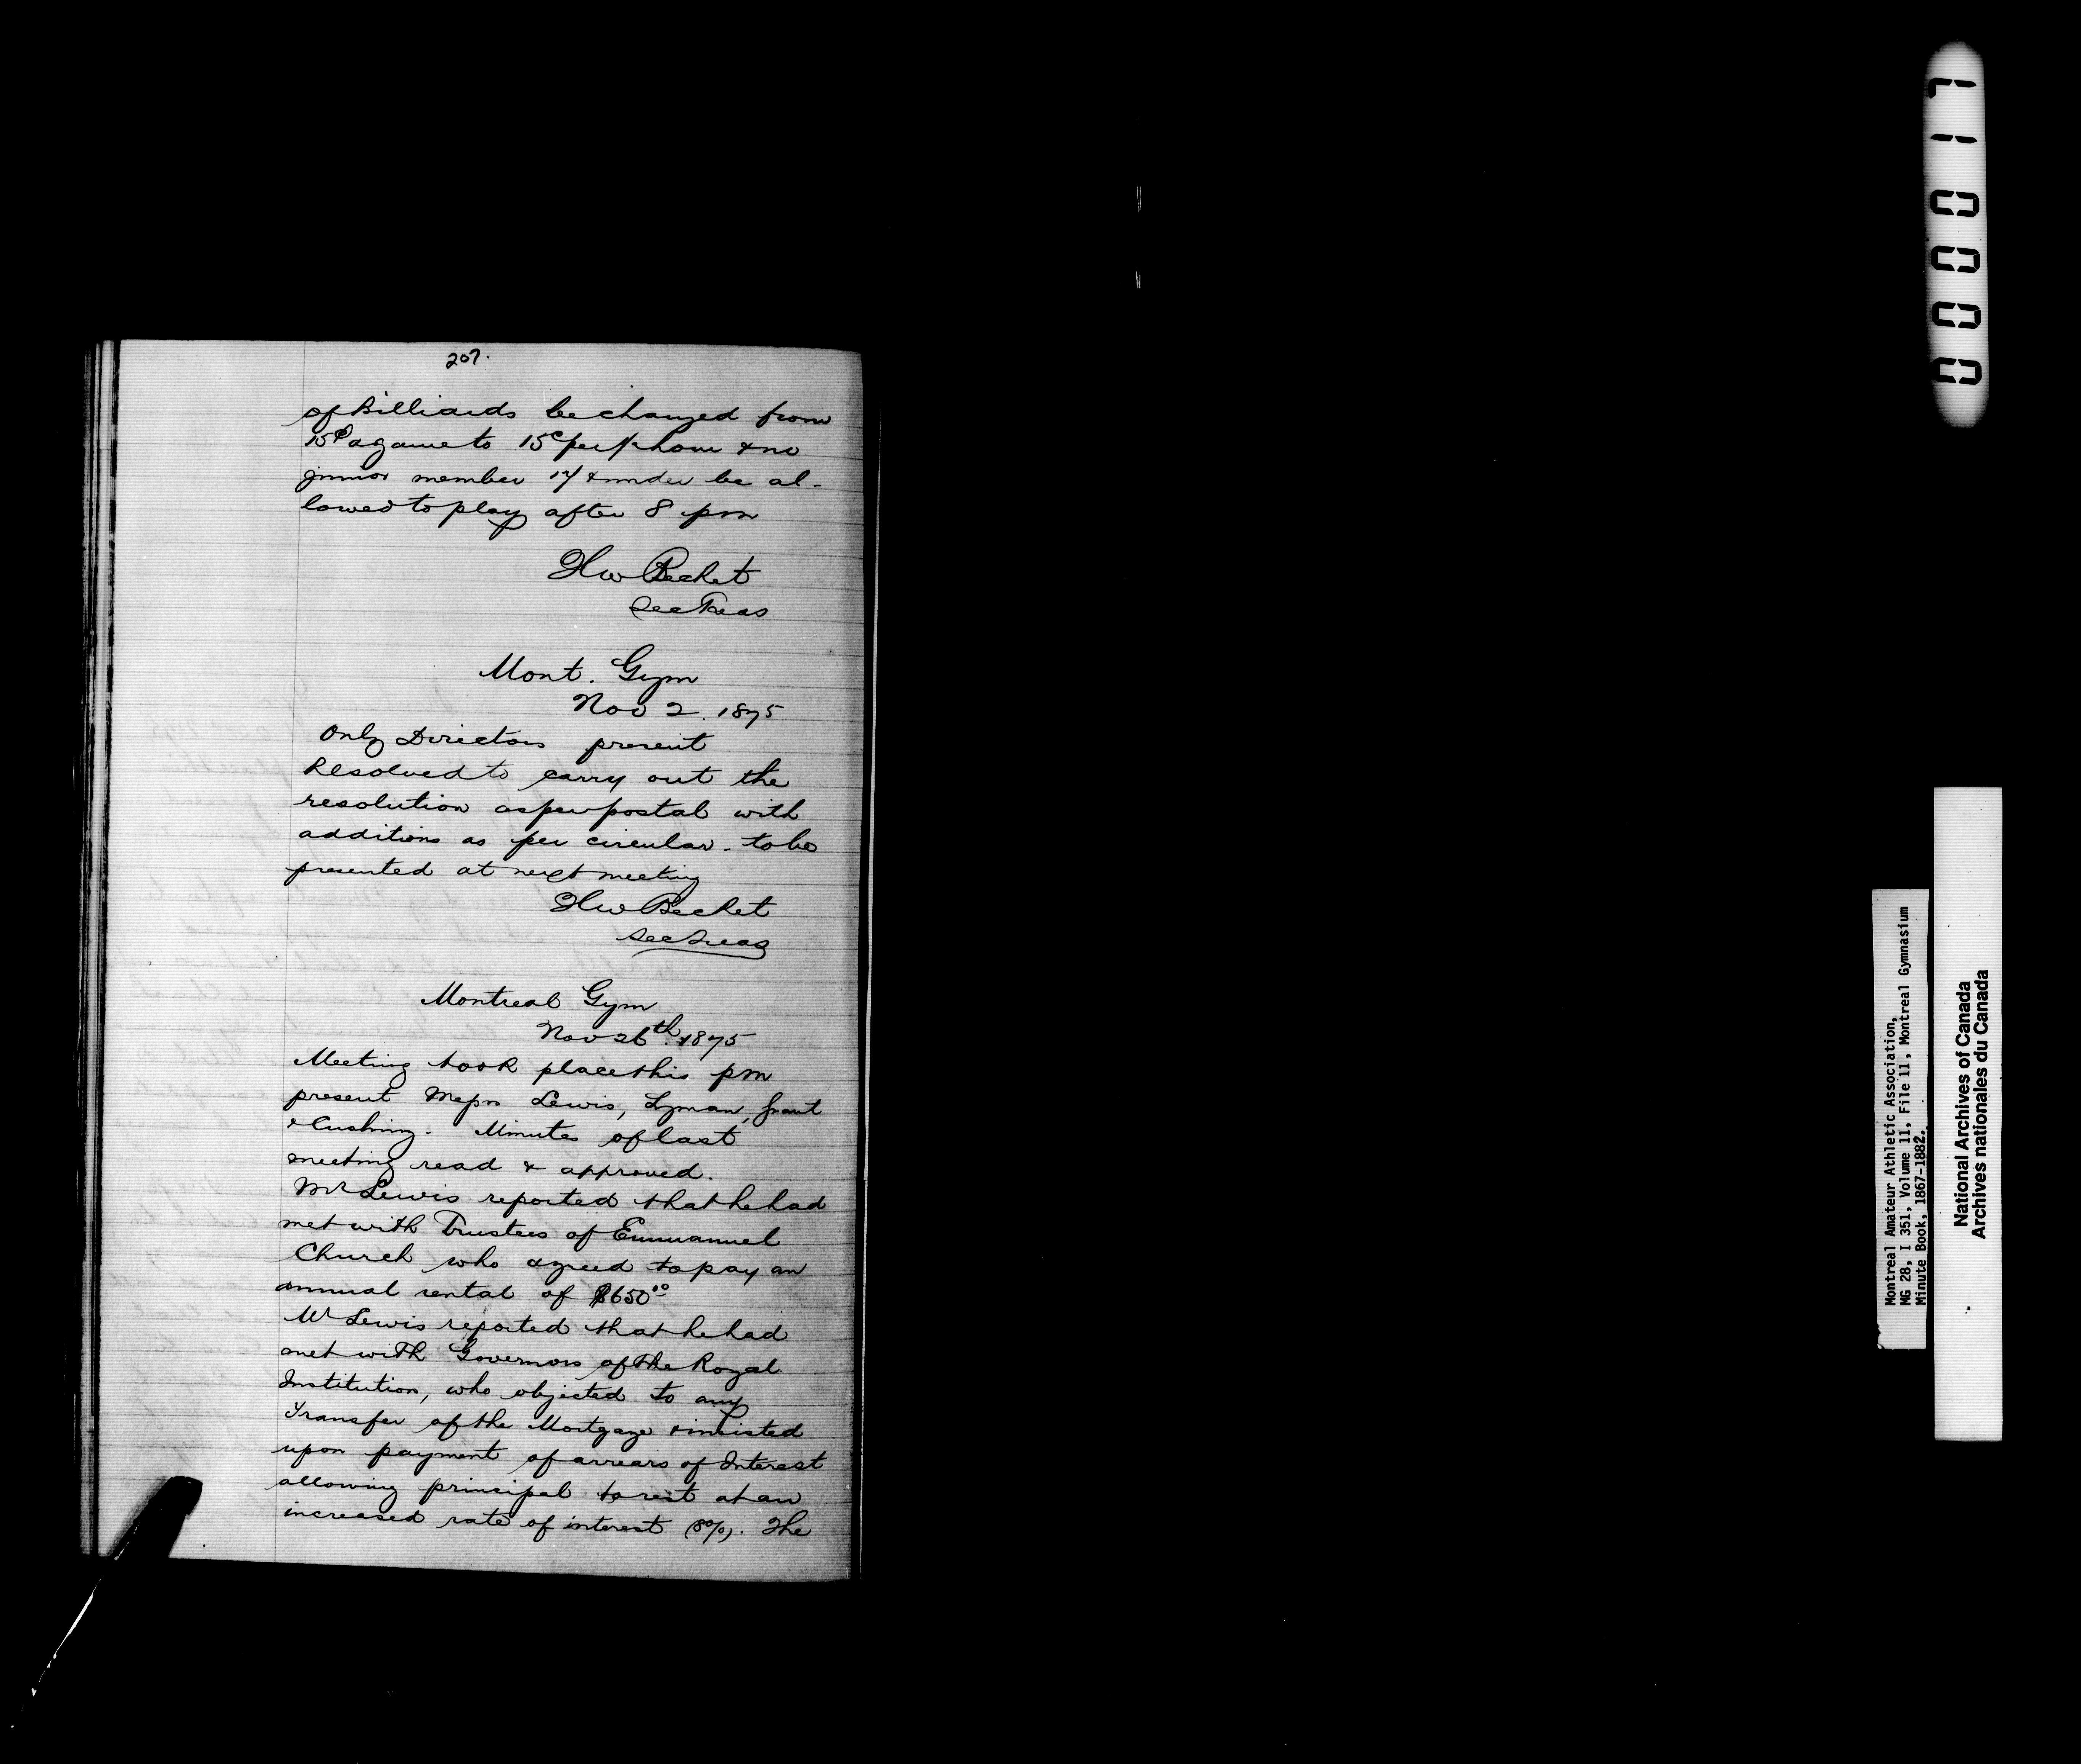 207.
of Billiards be changed from
15¢ a game to 15c per ½ hour & no
junior member 17 & under be al-
lowed to play after 8 pm
HW Becket
Sec Treas
Mont. Gym
Nov 2. 1875
Only Directors present
Resolved to carry out the
resolution as per postal with
additions as per circular. to be
presented at next meeting
HW Becket
Sec Treas
Montreal Gym
Nov 26th. 1875
Meeting took place this pm
present Messrs Lewis, Lyman, Grant
& Cushing. Minutes of last
meeting read & approved.
Mr Lewis reported that he had
met with Trustees of Emmanuel
Church who agreed to pay an
annual rental of $650.00
Mr Lewis reported that he had
met with Governors of the Royal
Institution, who objected to any
Transfer of the Mortgage & insisted
upon payment of arrears of Interest
allowing principal to rest at an
increased rate of interest (8%). The
710000
Montreal Amateur Athletic Association,
MG 28, I 351, Volume 11, File 11, Montreal Gymnasium
Minute Book, 1867-1882.
National Archives of Canada
Archives nationales du Canada